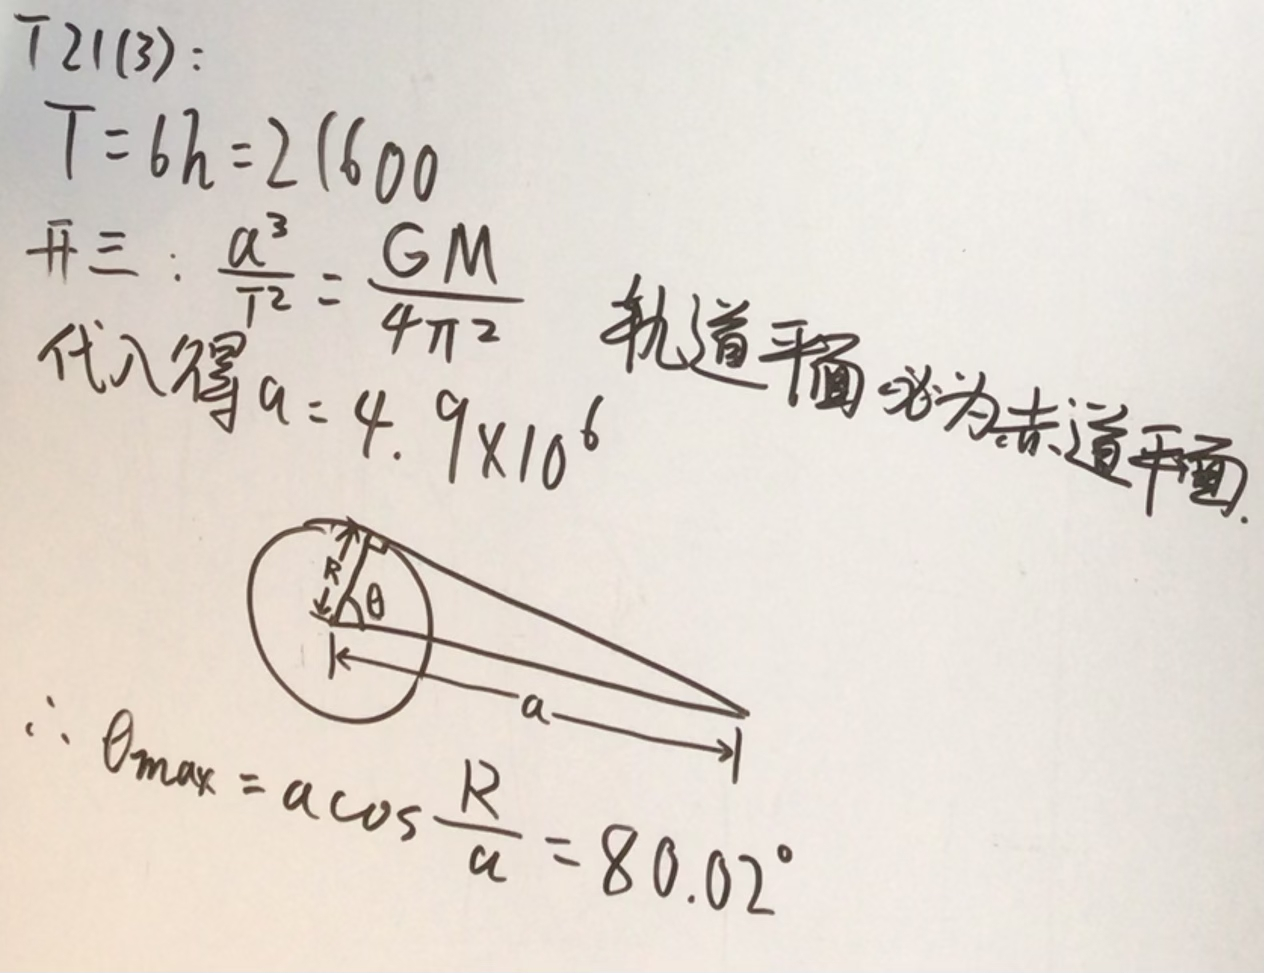 T21(3):
T=6h=21600
开三: a³/T² = GM/4π²
代入得a=4.9×10⁶
轨道平面必为赤道平面.
R
θ
a
∴ θmax = acos R/a = 80.02°